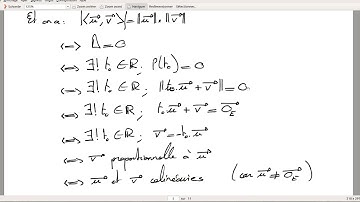 Et on a : |<u⃗, v⃗>| = ‖u⃗‖ . ‖v⃗‖
⟺ Δ = 0
⟺ ∃! t₀ ∈ ℝ ; P(t₀) = 0
⟺ ∃! t₀ ∈ ℝ ; ‖t₀.u⃗ + v⃗‖ = 0
⟺ ∃! t₀ ∈ ℝ ; t₀.u⃗ + v⃗ = 0⃗_E
⟺ ∃! t₀ ∈ ℝ ; v⃗ = -t₀.u⃗
⟺ v⃗ proportionnelle à u⃗
⟺ u⃗ et v⃗ colinéaires (car u⃗ ≠ 0⃗_E)